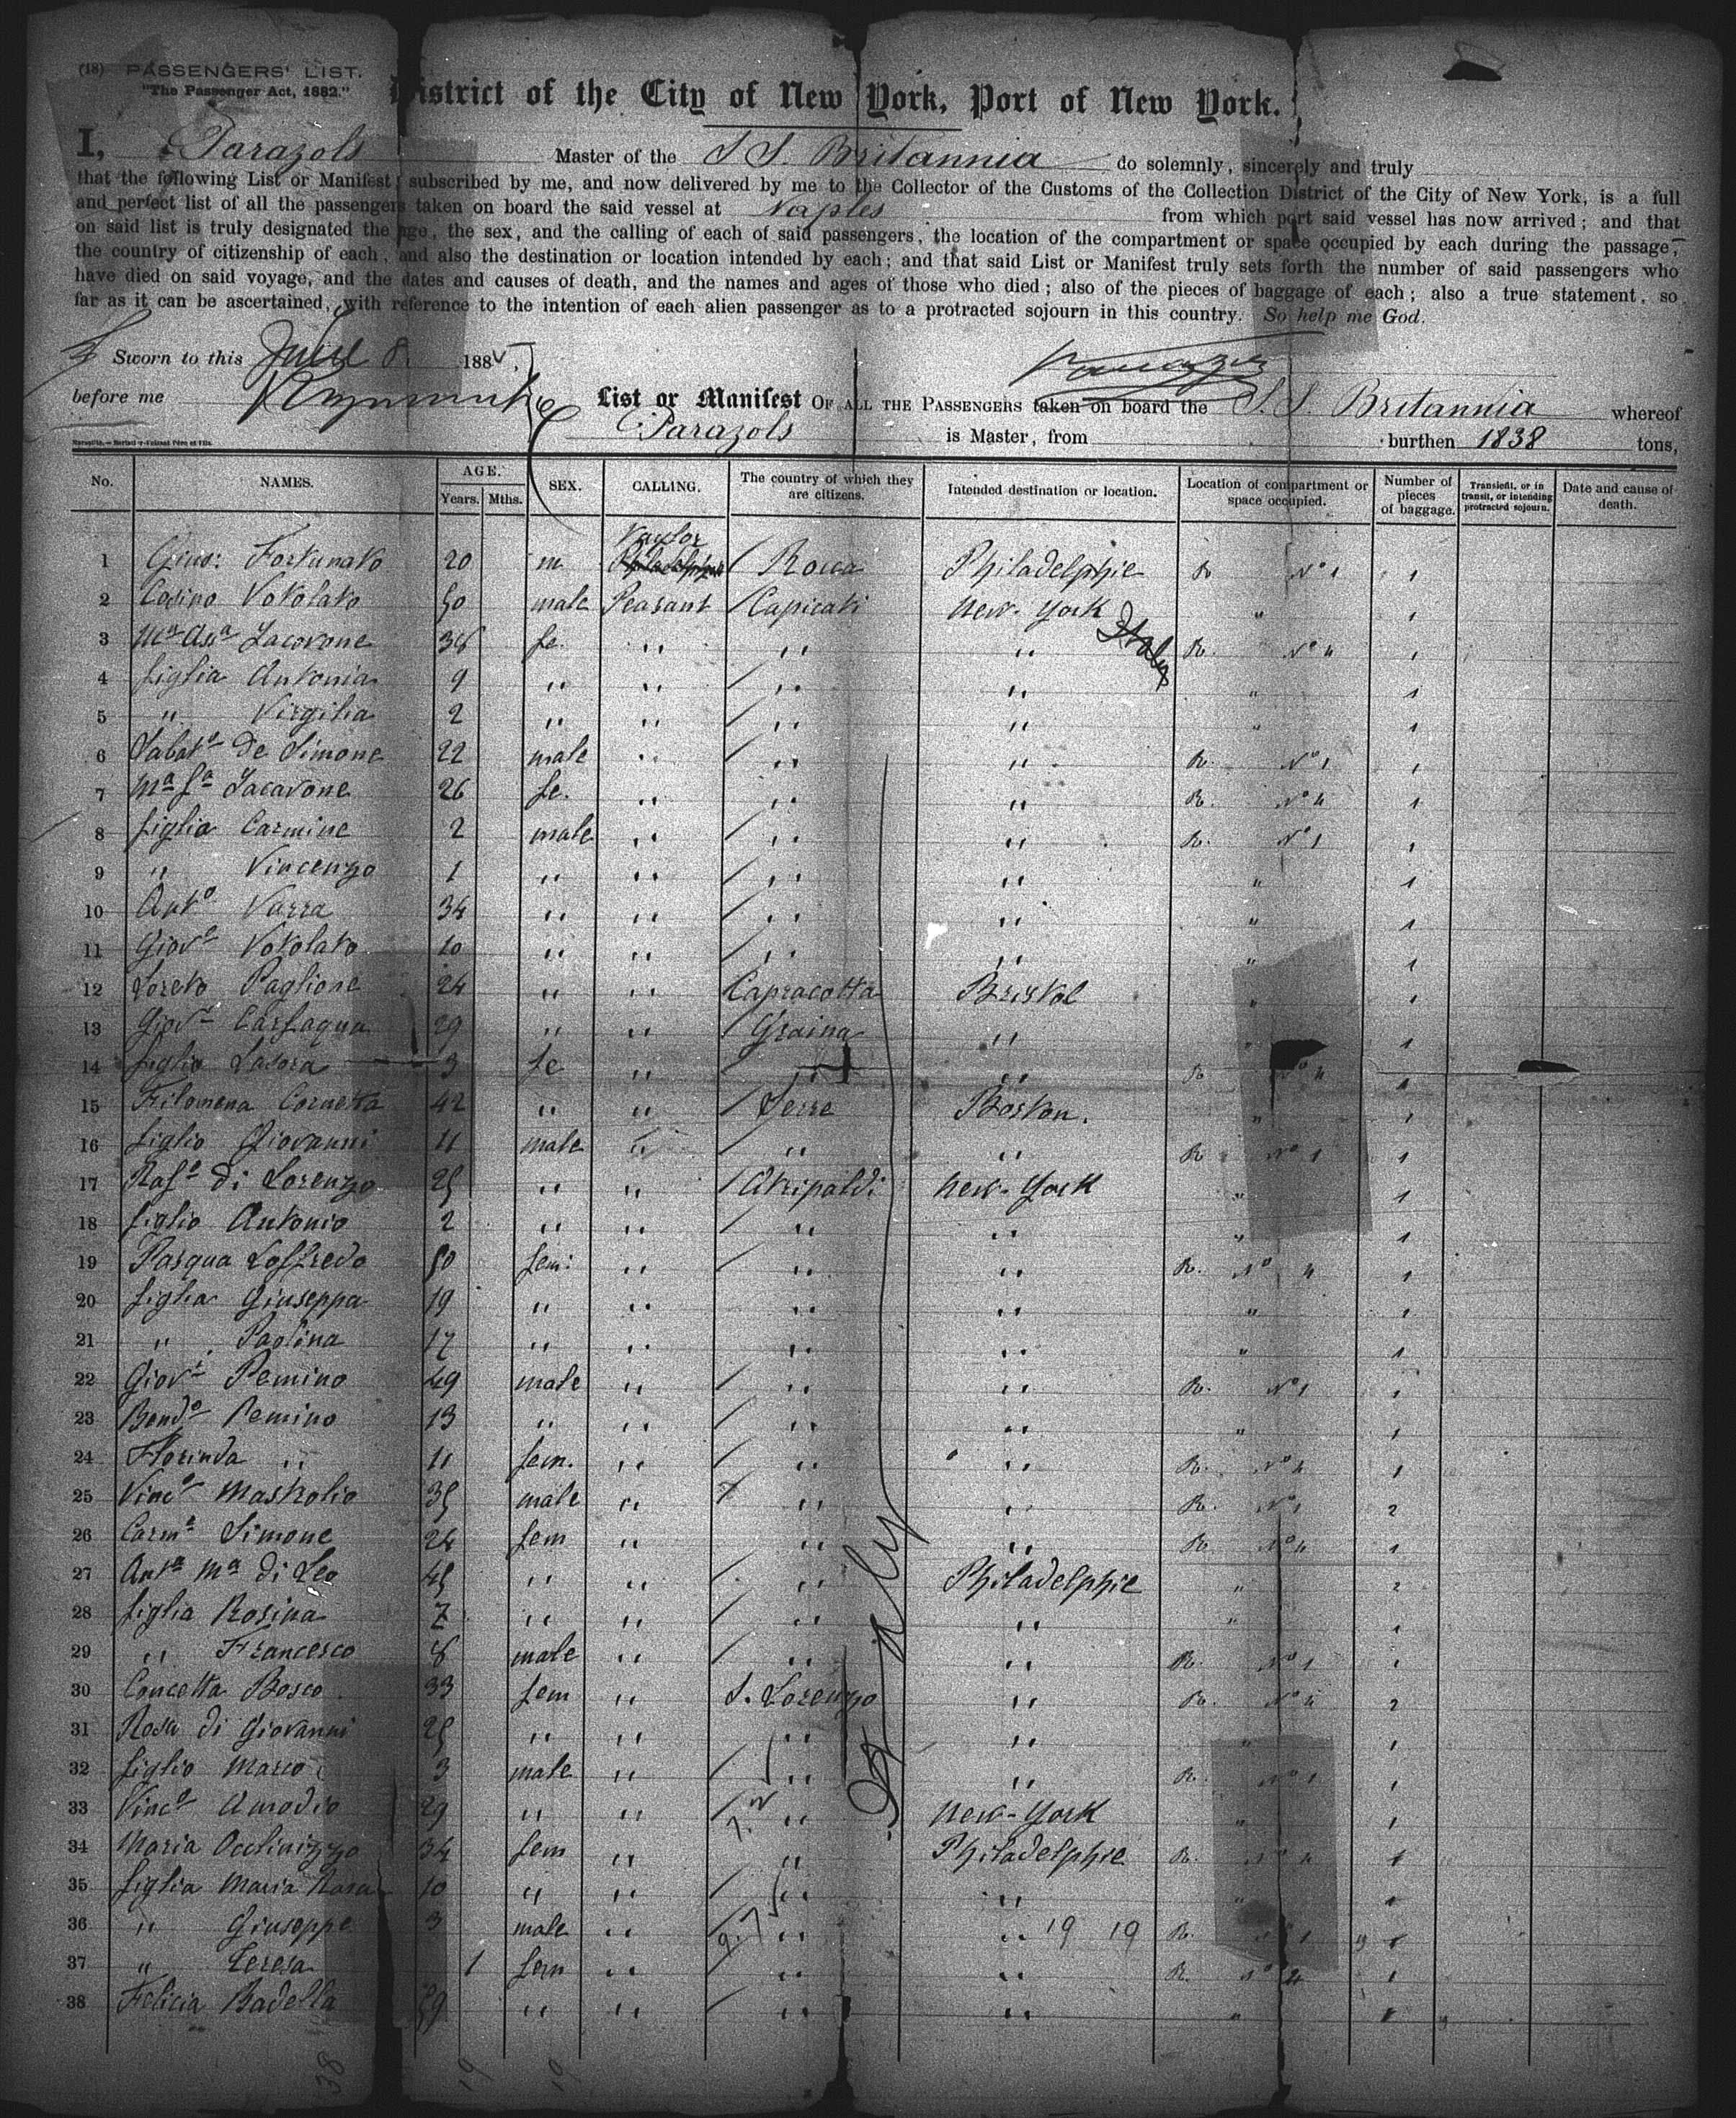 (18) PASSENGERS' LIST.
"The Passenger Act, 1882."
District of the City of New York, Port of New York.
I, Parazols Master of the S S. Britannia do solemnly, sincerely and truly
that the following List or Manifest, subscribed by me, and now delivered by me to the Collector of the Customs of the Collection District of the City of New York, is a full
and perfect list of all the passengers taken on board the said vessel at Naples from which port said vessel has now arrived; and that
on said list is truly designated the age, the sex, and the calling of each of said passengers, the location of the compartment or space occupied by each during the passage,
the country of citizenship of each, and also the destination or location intended by each; and that said List or Manifest truly sets forth the number of said passengers who
have died on said voyage, and the dates and causes of death, and the names and ages of those who died; also of the pieces of baggage of each; also a true statement, so
far as it can be ascertained, with reference to the intention of each alien passenger as to a protracted sojourn in this country. So help me God.
Sworn to this 8. 188
before me
List or Manifest OF ALL THE PASSENGERS taken on board the S. S. Britannia whereof
Parazols is Master, from burthen 1838 tons,
No. NAMES. AGE. Years. Mths. SEX. CALLING. The country of which they are citizens. Intended destination or location. Location of compartment or space occupied. Number of pieces of baggage. Transient, or in transit, or intending protracted sojourn. Date and cause of death.
1 Gius: Fortunato 20 m Taylor / Rocca Philadelphie R No 1 1
2 Cosimo Votolato 50 male Peasant / Capicati New-York " 1
Italy
3 Ma Assa Iacovone 36 fe. " " " R. No 4 1
4 figlia Antonia 9 " " / " " " 1
5 " Virgilia 2 " " / " " " 1
6 Sabato de Simone 22 male " / " " R. No 1 1
7 Ma Fa Iacavone 26 fe. " / " " R. No 4 1
8 figlio Carmine 2 male " / " " R. No 1 1
9 " Vincenzo 1 " " / " " " 1
10 Anto Varra 34 " " / " " " 1
11 Giove Votolato 10 " " / " " " 1
12 Loreto Paglione 24 " " Capracotta Bristol " 1
13 Giov 29 " " / Graina " " 1
14 figlia 3 fe " " " R No 4 1
15 Filomena Cornetta 42 " " / Serre Boston. " 1
16 figlio Giovanni 11 male " / " " R No 1 1
17 Rafe di Lorenzo 25 " " / Atripaldi New-York " 1
18 figlio Antonio 2 " " / " " " 1
19 Pasqua Loffredo 50 fem: " / " " R. No 4 1
20 figlia Giuseppa 19 " " / " " " 1
21 " Paolina 17 " " " " " 1
22 Giov Pemino 49 male " / " " R. No 1 1
23 Bendo Pemino 13 " " / " " " 1
24 Florinda " 11 fem. " / " " R. No 4 1
25 Vinco Mastrolio 35 male " / " " R. No 1 2
26 Carma Simone 24 fem " " " R No 4 1
27 Anta Ma di Leo 45 " " / " Philadelphie " 2
28 figlia Rosina 7 " " / " " " 1
29 " Francesco 6 male " / " " R. No 1 1
30 Concetta Bosco 33 fem " S. Lorenzo " R. No 4 2
31 Rosa di Giovanni 25 " " / " " " 1
32 figlio Marco 3 male " / " " R. No 1 1
33 Vinco Amodio 29 " " / " New-York " 1
34 Maria 34 fem " " Philadelphie R. No 4 1
35 figlia Maria Rosa 10 " " / " " " 1
36 " Giuseppe 3 male " " " 19 19 R. No 1 1
37 " Teresa 1 fem " " " R. No 4 1
38 Felicia Badella 59 " " / " " " 1
Italy
38 19 19